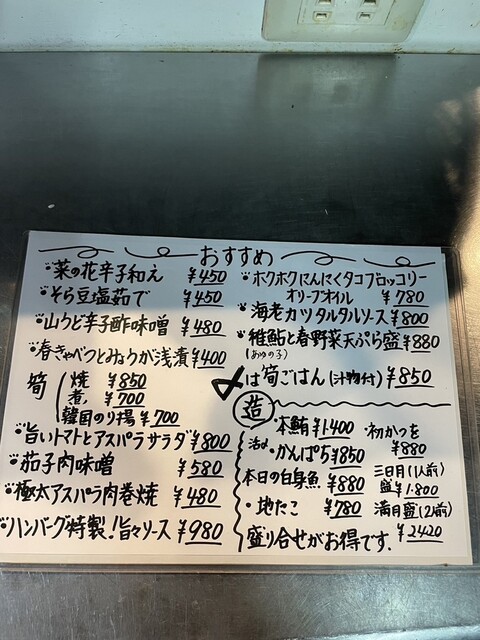 おすすめ
・菜の花辛子和え ¥450
・そら豆塩茹で ¥450
・山うど辛子酢味噌 ¥480
・春きゃべつとみょうが浅漬 ¥400
筍
焼 ¥850
煮 ¥700
韓国のり揚 ¥700
・旨いトマトとアスパラサラダ ¥800
・茄子肉味噌 ¥580
・極太アスパラ肉巻焼 ¥480
・ハンバーグ特製!旨々ソース ¥980
・ホクホクにんにくタコブロッコリー
オリーブオイル ¥780
・海老カツタルタルソース ¥800
・稚鮎と春野菜天ぷら盛 ¥880
(あゆの子)
〆は筍ごはん(汁物付) ¥850
造
・本鮪 ¥1400
活〆かんぱち ¥850
本日の白身魚 ¥880
・地たこ ¥780
・初かつを
¥880
三日月(1人前)
盛 ¥1.800
満月盛(2人前)
¥2420
盛り合せがお得です.